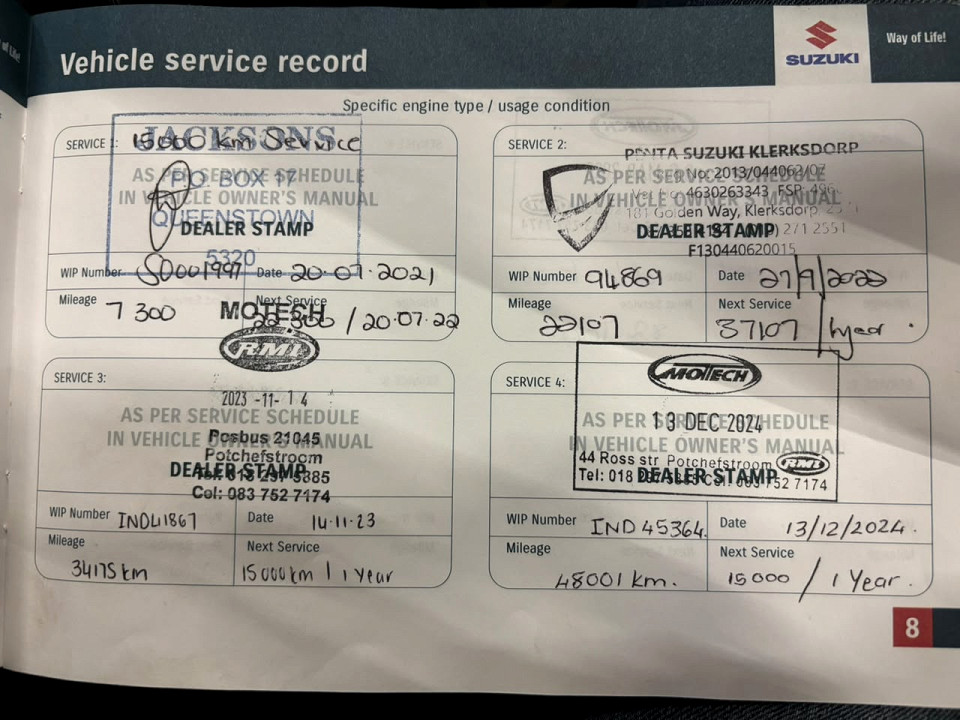 Vehicle service record
SUZUKI
Way of Life!
Specific engine type / usage condition
SERVICE 1: 15000 km Service
JACKSONS
AS PER SERVICE SCHEDULE
P.O. BOX 17
IN VEHICLE OWNER'S MANUAL
QUEENSTOWN
DEALER STAMP
5320
WIP Number S0001997 Date 20.07.2021
Mileage 7 300
Next Service 22 300 / 20.07.22
SERVICE 2:
PENTA SUZUKI KLERKSDORP
No. 2013/044063/07
AS PER SERVICE SCHEDULE
4630263343 FSP
IN VEHICLE OWNER'S MANUAL
181 Golden Way, Klerksdorp
DEALER STAMP
271 2551
F130440620015
WIP Number 94869 Date 27/9/2022
Mileage 22107
Next Service 37107 / 1year .
MOTECH
RMI
SERVICE 3:
2023 -11- 14
AS PER SERVICE SCHEDULE
Posbus 21045
IN VEHICLE OWNER'S MANUAL
Potchefstroom
DEALER STAMP
Tel: 018 297 5885
Cel: 083 752 7174
WIP Number IND41867 Date 14.11.23
Mileage 34175 km
Next Service 15 000km / 1 Year
SERVICE 4:
MOTECH
AS PER SERVICE SCHEDULE
13 DEC 2024
IN VEHICLE OWNER'S MANUAL
44 Ross str Potchefstroom RMI
DEALER STAMP
Tel: 018 297 5885 Cel: 083 752 7174
WIP Number IND 45364. Date 13/12/2024.
Mileage 48001 km.
Next Service 15 000 / 1 Year.
8